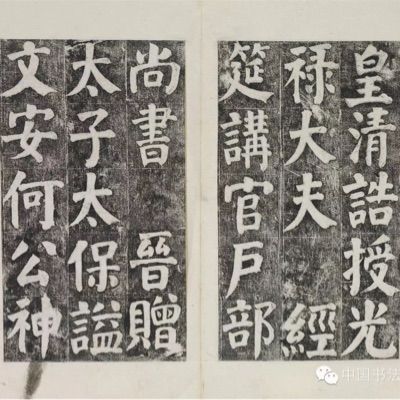 皇清誥授光
禄大夫 經
筵講官戶部
尚書 晉贈
太子太保謚
文安何公神
中国书法